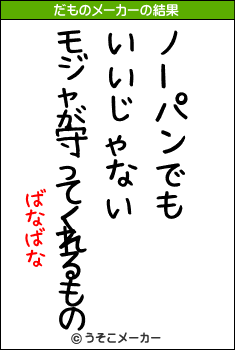 だものメーカーの結果
ノーパンでも
いいじゃない
モジャが守ってくれるもの
ばなばな
©うそこメーカー